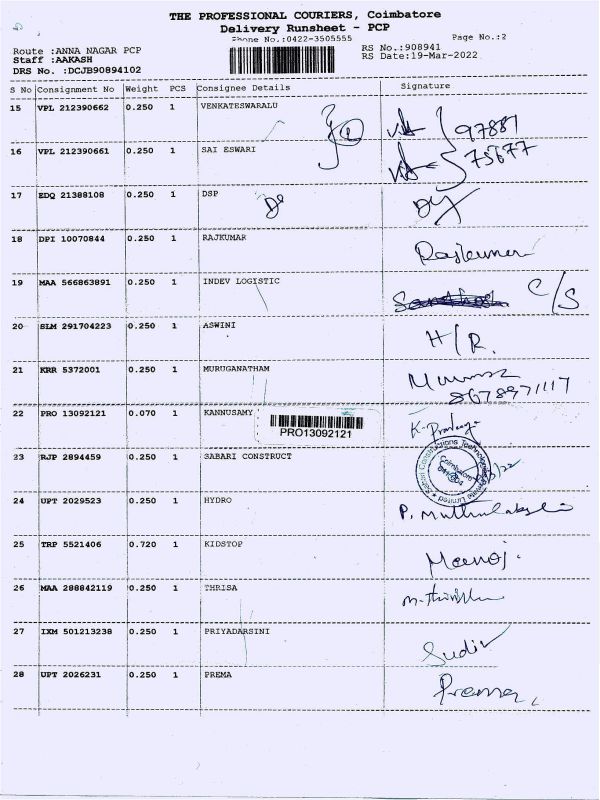 THE PROFESSIONAL COURIERS, Coimbatore
Delivery Runsheet - PCP
Phone No.:0422-3505555
Page No.:2
Route :ANNA NAGAR PCP
RS No.:908941
Staff :AAKASH
RS Date:19-Mar-2022
DRS No. :DCJB90894102
S No Consignment No Weight PCS Consignee Details Signature
15 VPL 212390662 0.250 1 VENKATESWARALU
16 VPL 212390661 0.250 1 SAI ESWARI
17 EDQ 21388108 0.250 1 DSP
18 DPI 10070844 0.250 1 RAJKUMAR Rajkumar
19 MAA 566863891 0.250 1 INDEV LOGISTIC C/S
20 SLM 291704223 0.250 1 ASWINI H/R.
21 KRR 5372001 0.250 1 MURUGANATHAM
8678971117
22 PRO 13092121 0.070 1 KANNUSAMY
PRO13092121
23 RJP 2894459 0.250 1 SABARI CONSTRUCT
24 UPT 2029523 0.250 1 HYDRO P. Muthulakshmi
25 TRP 5521406 0.720 1 KIDSTOP Manoj.
26 MAA 288842119 0.250 1 THRISA
27 IXM 501213238 0.250 1 PRIYADARSINI Sudir
28 UPT 2026231 0.250 1 PREMA Prema,